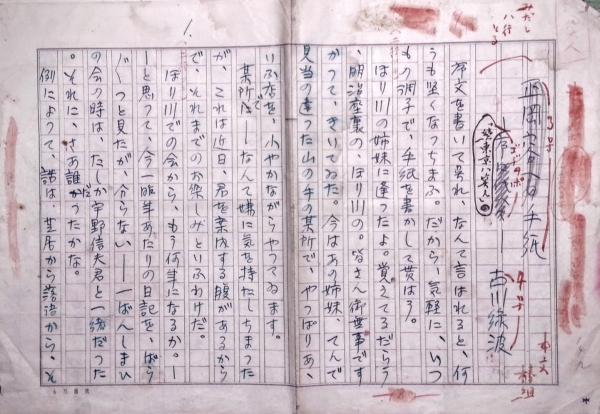 みだし
八行
とる
3号
平岡権八郎への手紙
「続・東京八笑人」の
4号
古川緑波
本文
棒組
1.
序文を書いて呉れ、なんて言はれると、何
うも堅くなつちまふ。だから、気軽に、いつ
もの調子で、手紙を書かして貰はう。
ほり川の姉妹に逢つたよ。覚えてるだらう
、明治座裏の、ほり川の。皆さん御無事です
かつて、きいてゐた。今はあの姉妹、てんで
見当の違つた山の手の某所で、やつぱりあゝ
いふ店を、小やかながらやつてゐます。
某所で――なんて嫌に気を持たしちまつた
が、これは近日、君を案内する腹があるから
で、それまでのお楽しみといふわけだ。
ほり川での会から、もう何年になるか。―
―と思つて、今一昨年あたりの日記を、ぱら
ぱらつと見たが、分らない――一ばんしまひ
の会の時は、たしか宇野信夫君と一緒だつた
。それに、さあ誰だつたかな。
例によつて、話は、芝居から落語から、そ